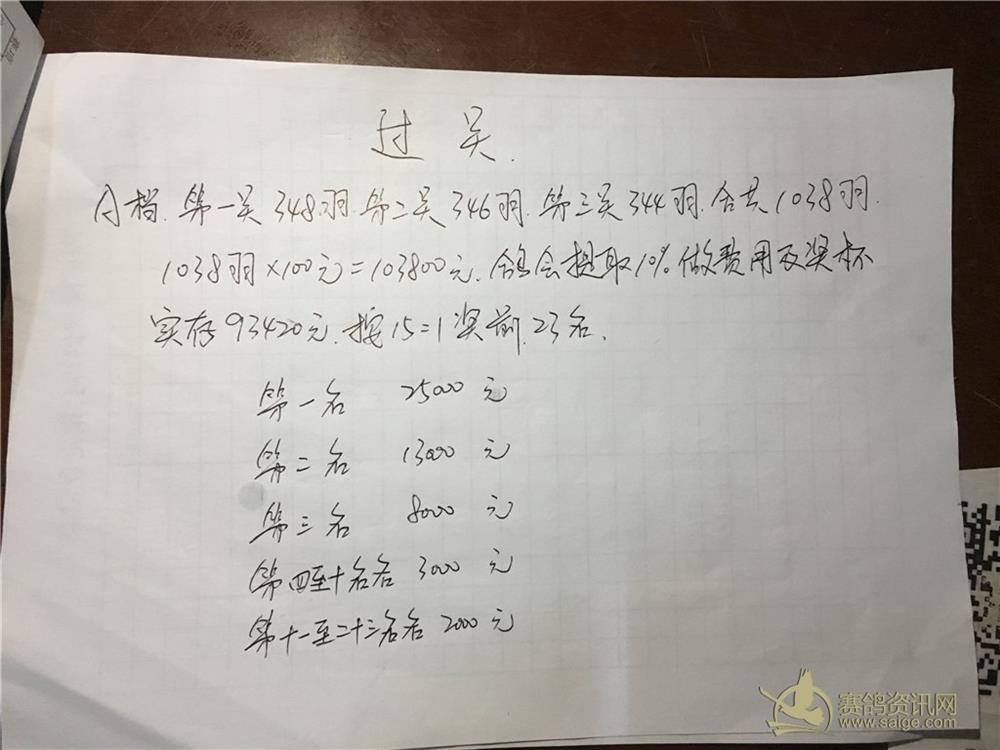 过关.
A档.第一关348羽.第二关346羽.第三关344羽.合共1038羽.
1038羽×100元=103800元.鸽会提取10%做费用及奖杯
实存93420元.按15=1奖前23名.
第一名 25000元
第二名 13000元
第三名 8000元
第四至十名各 3000元
第十一至二十三名各 2000元
赛鸽资讯网
www.saige.com